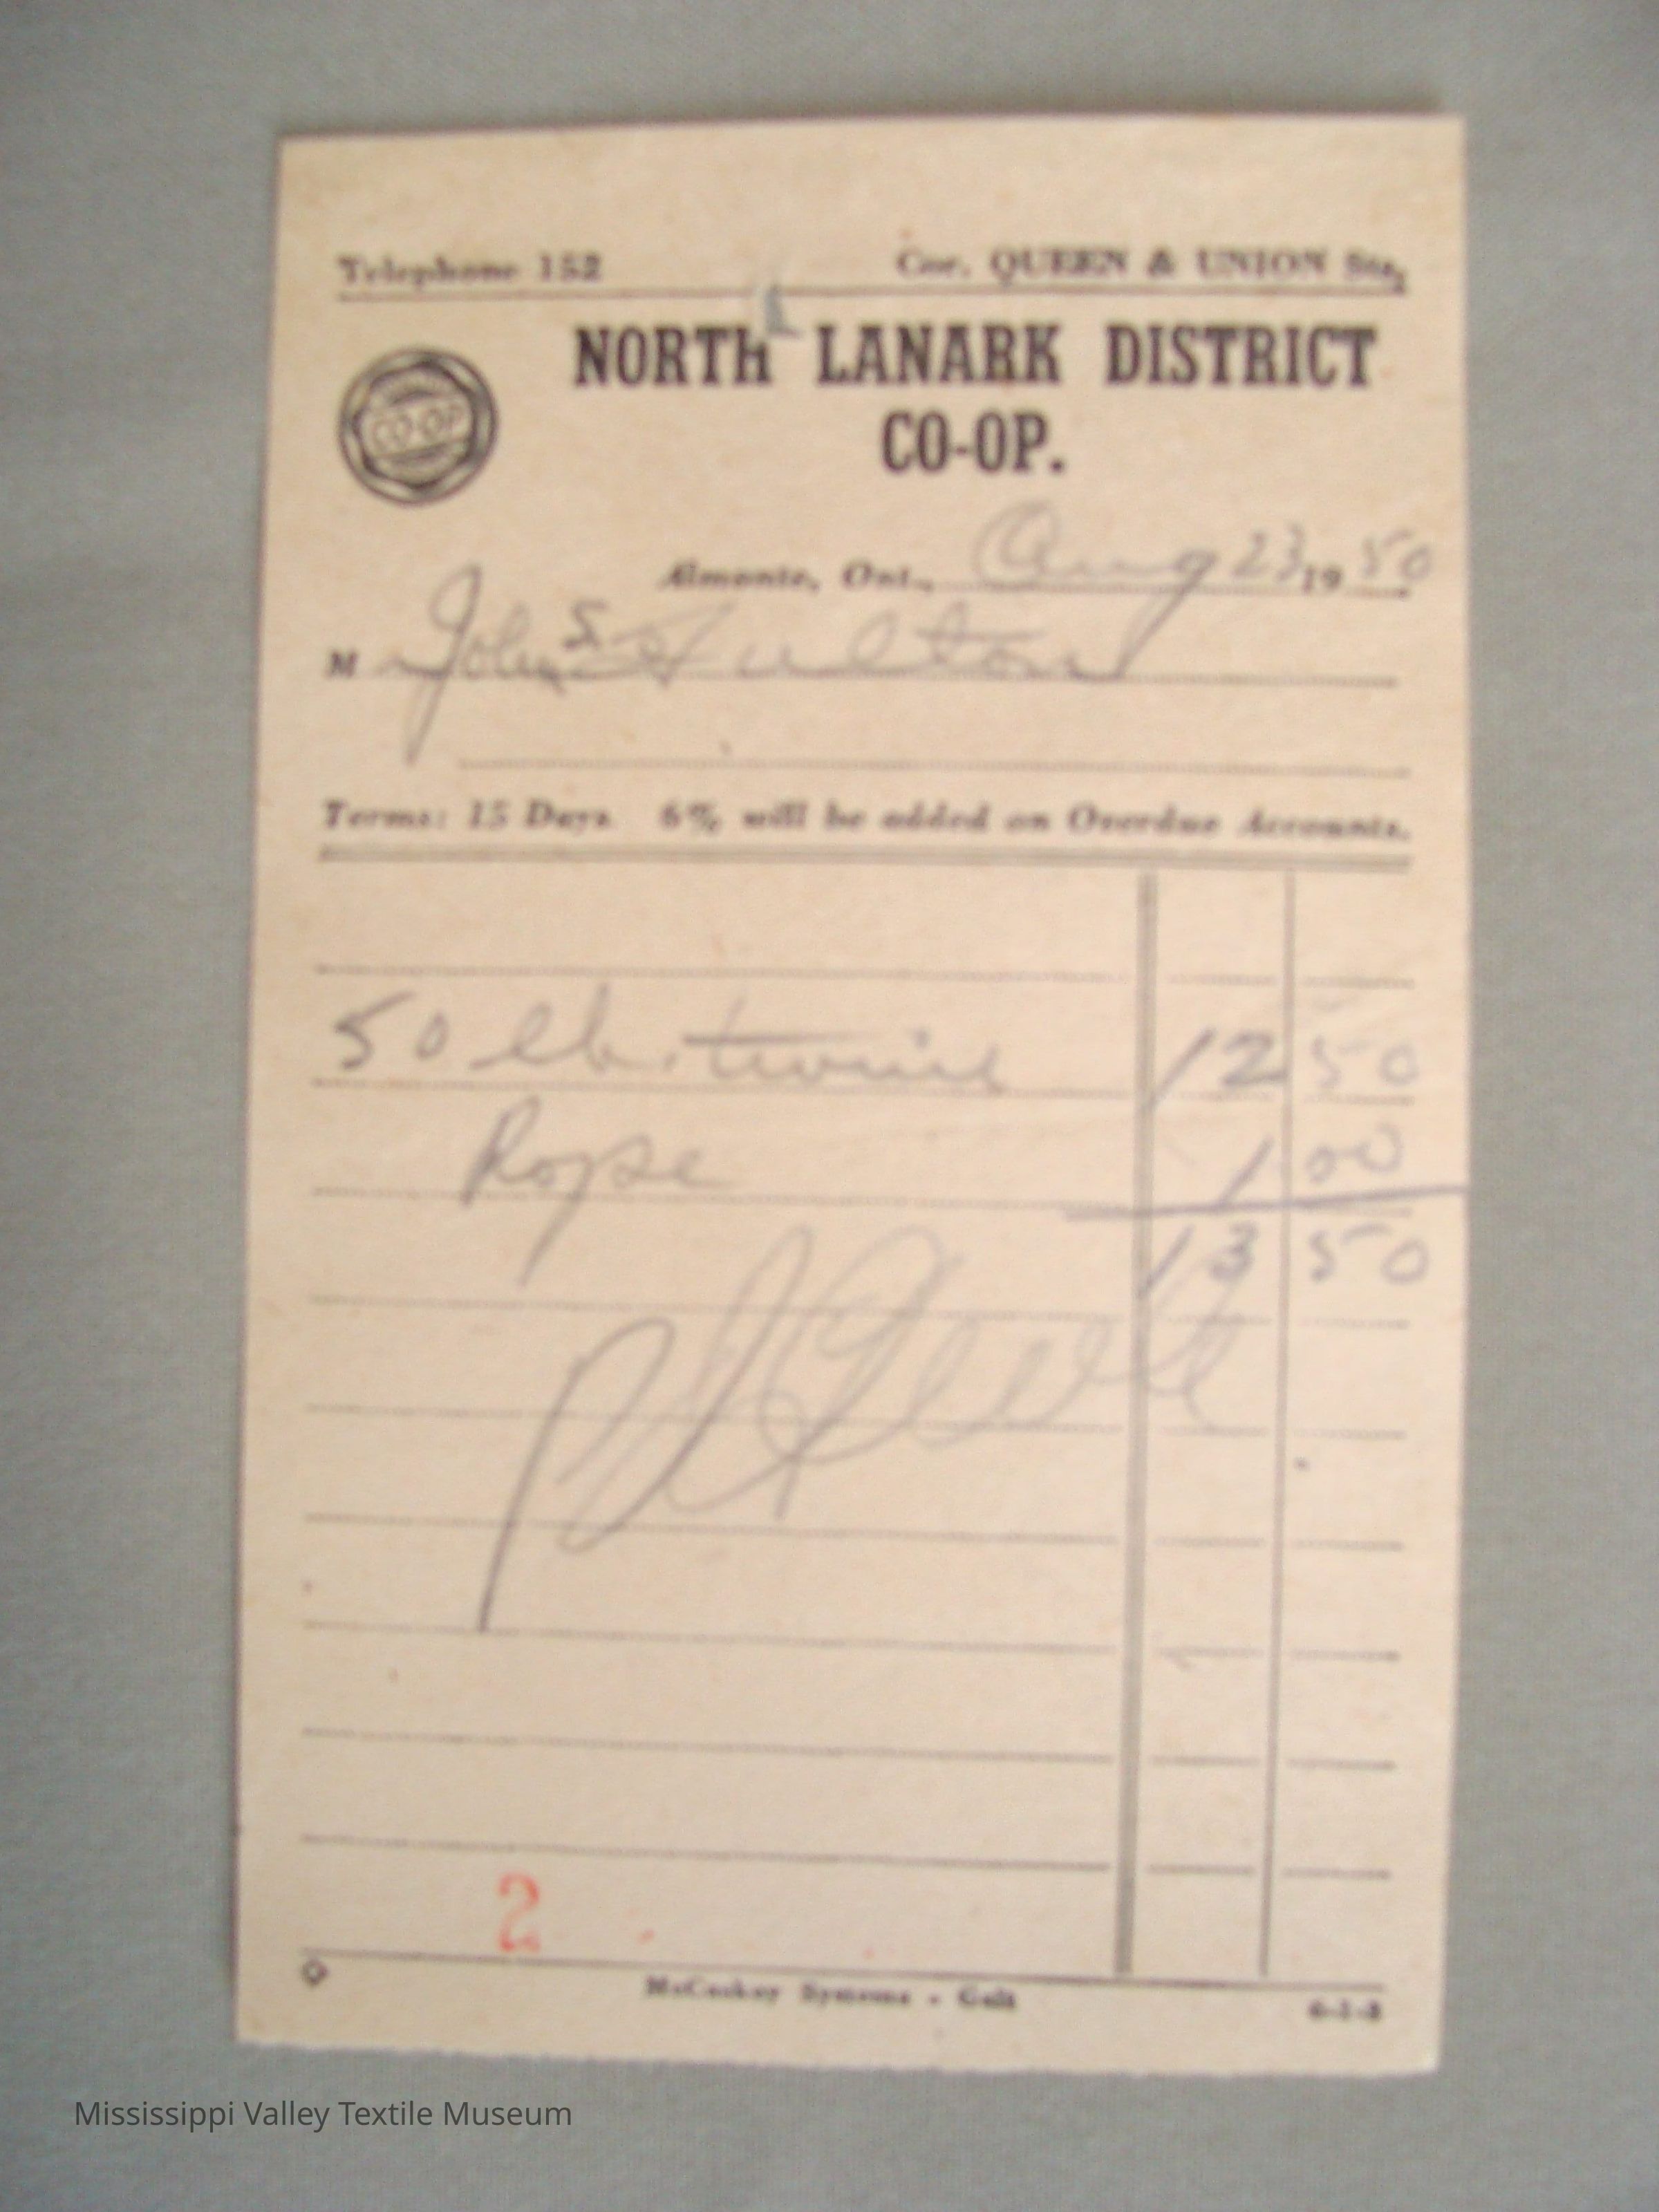 Telephone 152 Cor. QUEEN & UNION Sts.
NORTH LANARK DISTRICT
CO-OP.
CO-OP
Almonte, Ont., Aug 23, 19 50
M John S Fulton
Terms: 15 Days 6% will be added on Overdue Accounts.
50 lb. twine 12 50
Rope 1 00
13 50
2
McCaskey Systems - Galt
Mississippi Valley Textile Museum